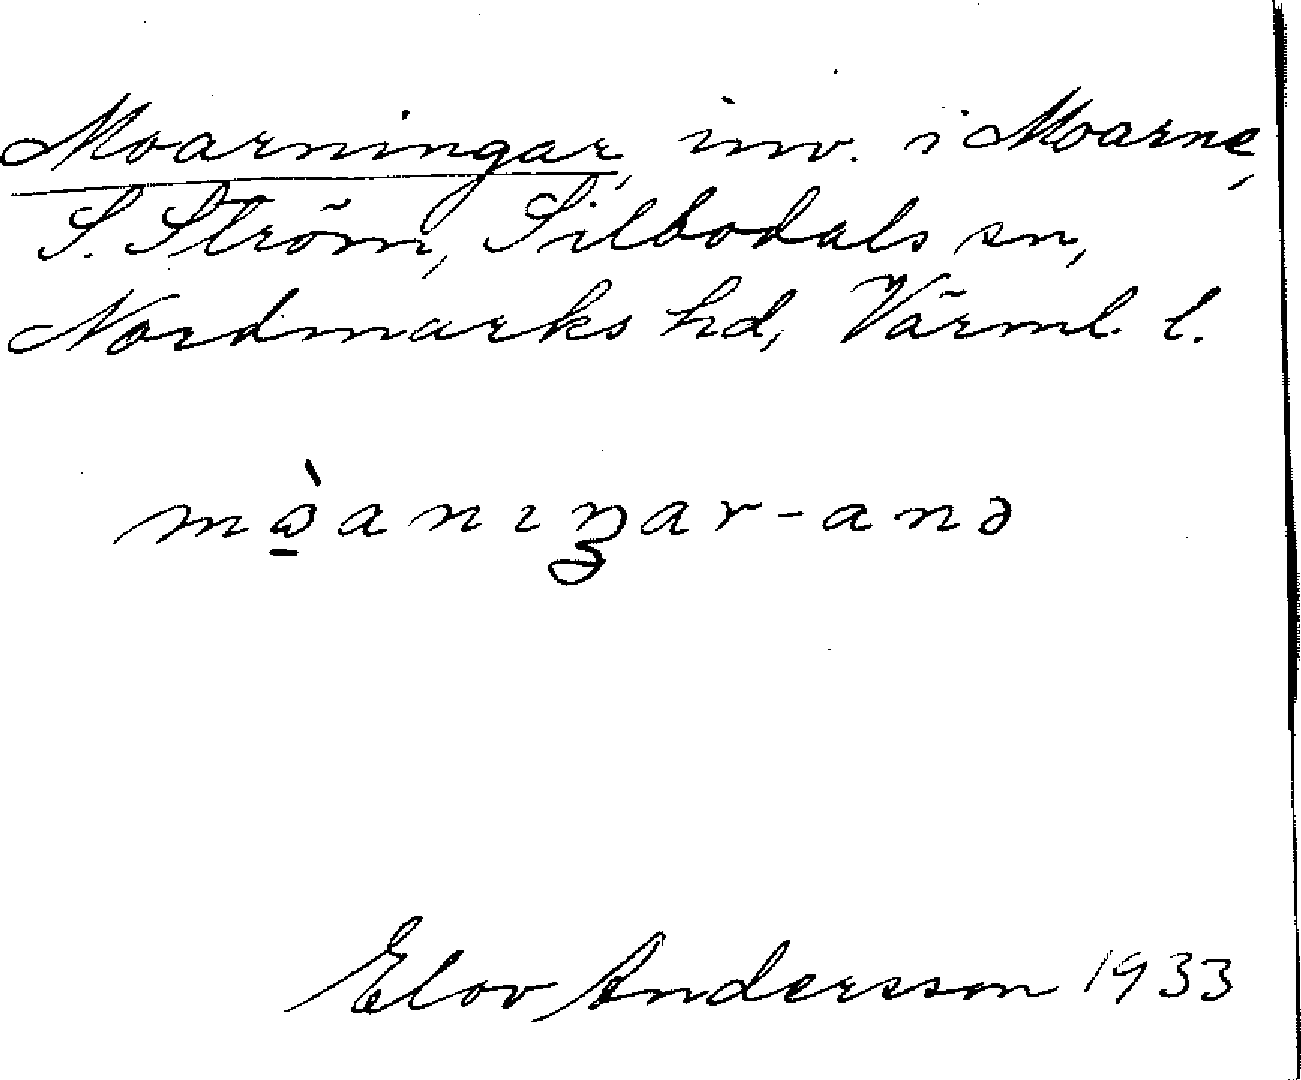 Moarningar, inv. i Moarne,
S. Ström, Silbodals sn,
Nordmarks hd, Värml. l.
mɷ̠̀anɩŋar-anə
Elov Andersson 1933